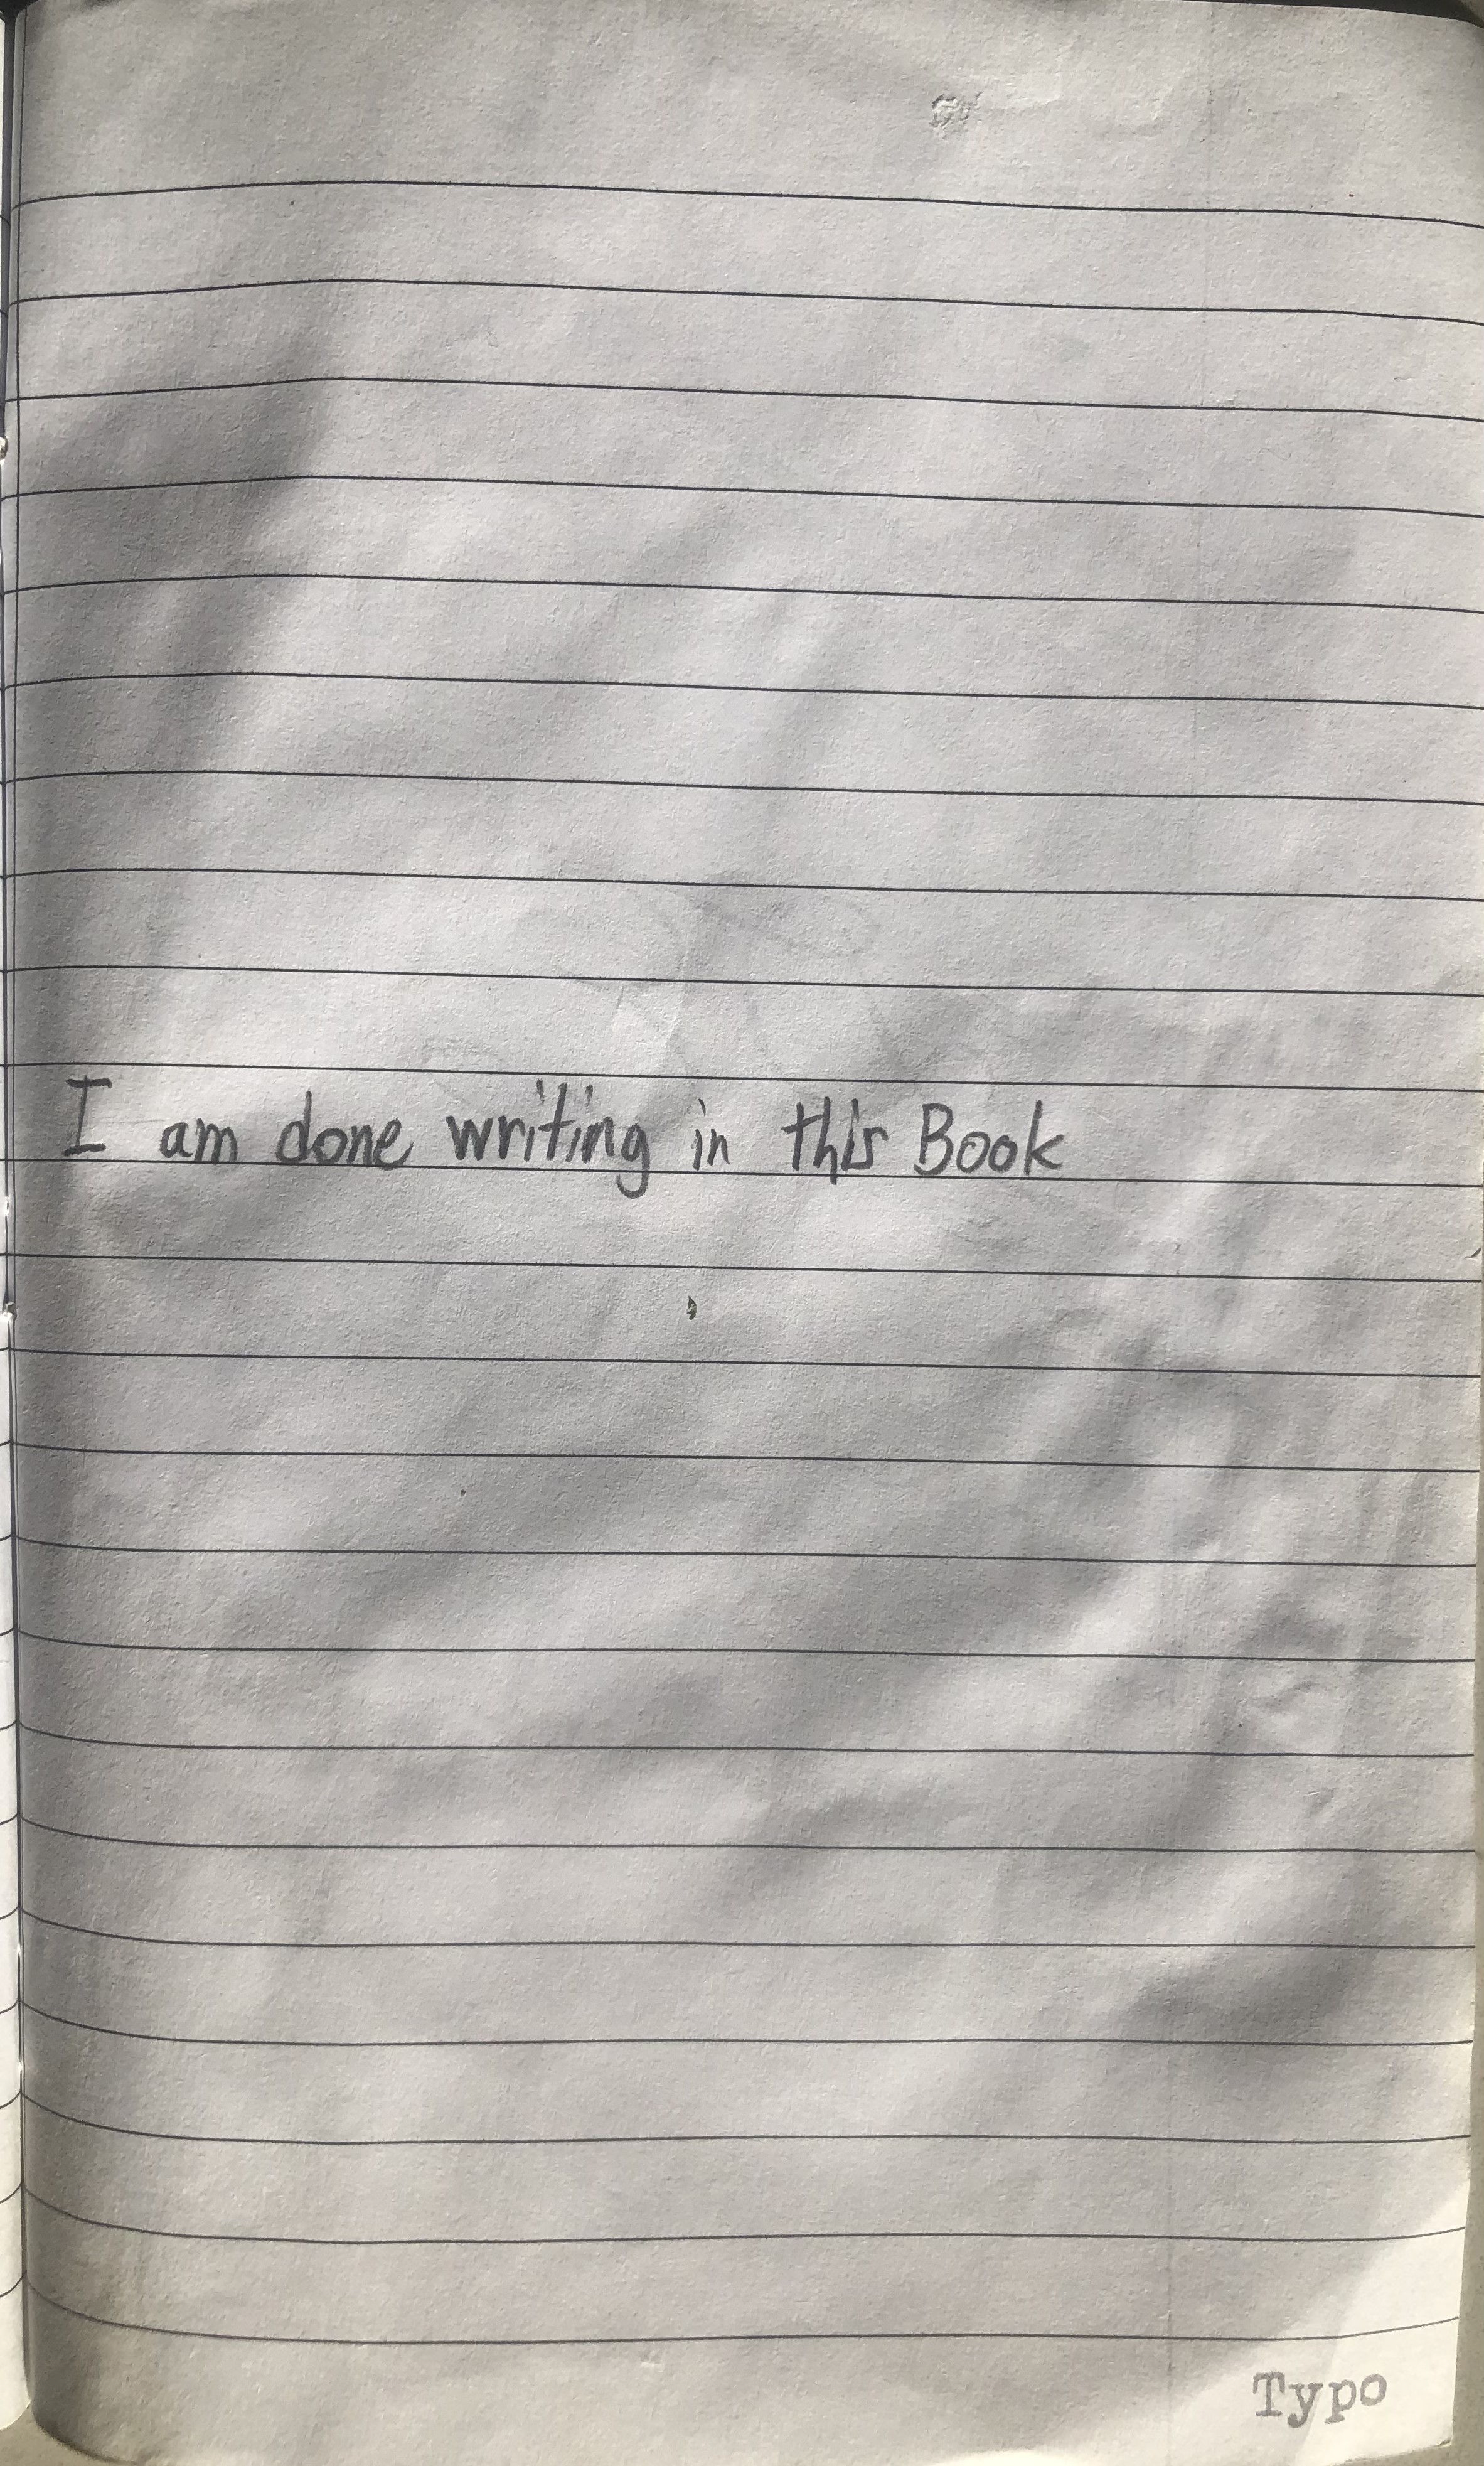 I am done writing in this Book
Typo